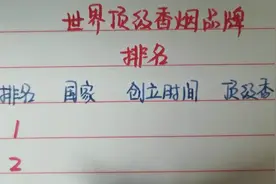 世界顶级香烟品牌
排名
排名 国家 创立时间 顶级香
1
2